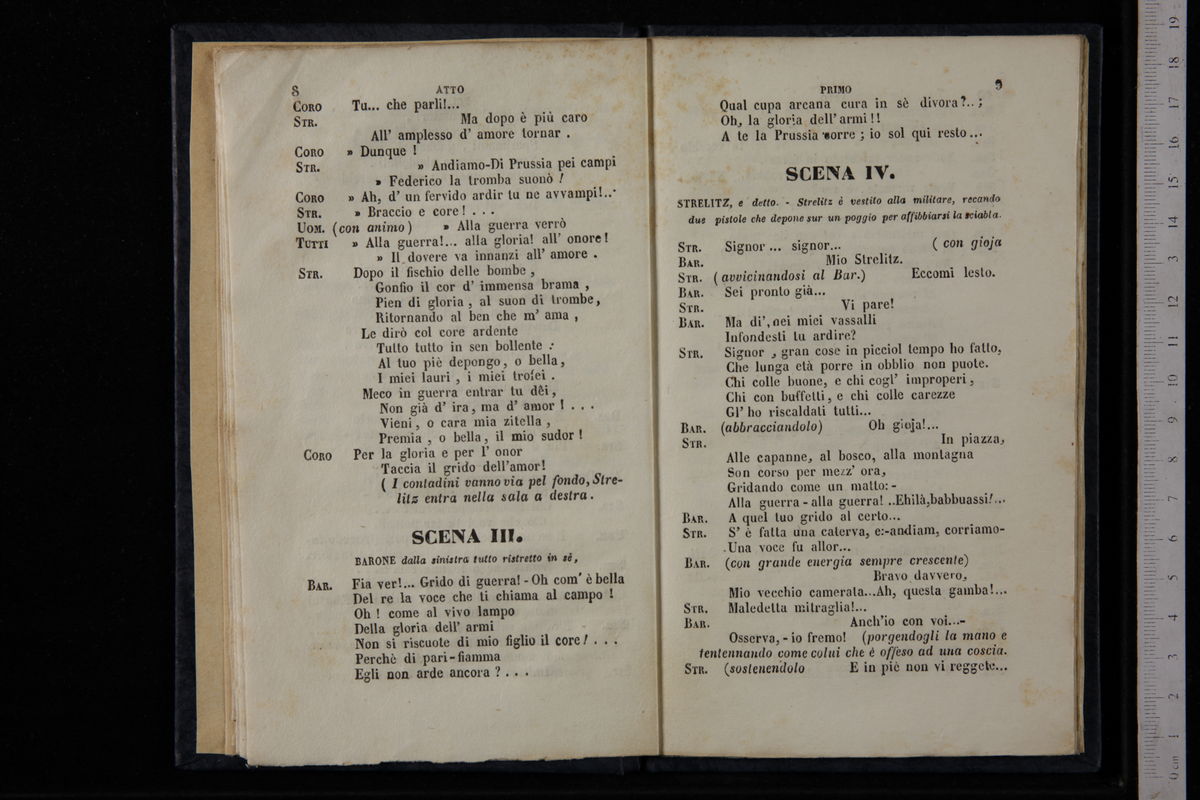 8 ATTO
CORO Tu... che parli!...
STR. Ma dopo è più caro
All' amplesso d' amore tornar .
CORO » Dunque !
STR. » Andiamo-Di Prussia pei campi
» Federico la tromba suonò !
CORO » Ah, d' un fervido ardir tu ne avvampi!..·
STR. » Braccio e core! . . .
UOM. (con animo) » Alla guerra verrò
TUTTI » Alla guerra!... alla gloria! all' onore!
» Il dovere va innanzi all' amore .
STR. Dopo il fischio delle bombe ,
Gonfio il cor d' immensa brama ,
Pien di gloria , al suon di trombe,
Ritornando al ben che m' ama ,
Le dirò col core ardente
Tutto tutto in sen bollente :
Al tuo piè depongo, o bella,
I miei lauri , i miei trofei .
Meco in guerra entrar tu dêi,
Non già d' ira, ma d' amor ! . . .
Vieni, o cara mia zitella ,
Premia , o bella, il mio sudor !
CORO Per la gloria e per l' onor
Taccia il grido dell'amor!
( I contadini vanno via pel fondo, Stre-
litz entra nella sala a destra.
SCENA III.
BARONE dalla sinistra tutto ristretto in sè,
BAR. Fia ver!... Grido di guerra! - Oh com' è bella
Del re la voce che ti chiama al campo !
Oh ! come al vivo lampo
Della gloria dell' armi
Non si riscuote di mio figlio il core! . . .
Perchè di pari-fiamma
Egli non arde ancora ? . . .
PRIMO 9
Qual cupa arcana cura in sè divora?..;
Oh, la gloria dell'armi!!
A te la Prussia corre ; io sol qui resto...
SCENA IV.
STRELITZ, e detto. - Strelitz è vestito alla militare, recando
due pistole che depone sur un poggio per affibbiarsi la sciabla.
STR. Signor ... signor... ( con gioja
BAR. Mio Strelitz.
STR. (avvicinandosi al Bar.) Eccomi lesto.
BAR. Sei pronto già...
STR. Vi pare!
BAR. Ma di', nei miei vassalli
Infondesti tu ardire?
STR. Signor , gran cose in picciol tempo ho fatto,
Che lunga età porre in obblio non puote.
Chi colle buone, e chi cogl' improperi,
Chi con buffetti, e chi colle carezze
Gl' ho riscaldati tutti...
BAR. (abbracciandolo) Oh gioja!...
STR. In piazza,
Alle capanne, al bosco, alla montagna
Son corso per mezz' ora,
Gridando come un matto: -
Alla guerra - alla guerra! ..Ehilà,babbuassi!...
BAR. A quel tuo grido al certo...
STR. S' è fatta una caterva, e:-andiam, corriamo-
.Una voce fu allor...
BAR. (con grande energia sempre crescente)
Bravo davvero,
Mio vecchio camerata...Ah, questa gamba!...
STR. Maledetta mitraglia!...
BAR. Anch'io con voi...-
Osserva, - io fremo! (porgendogli la mano e
tentennando come colui che è offeso ad una coscia.
STR. (sostenendolo E in piè non vi reggete...
0 cm 1 2 3 4 5 6 7 8 9 10 11 12 13 14 15 16 17 18 19